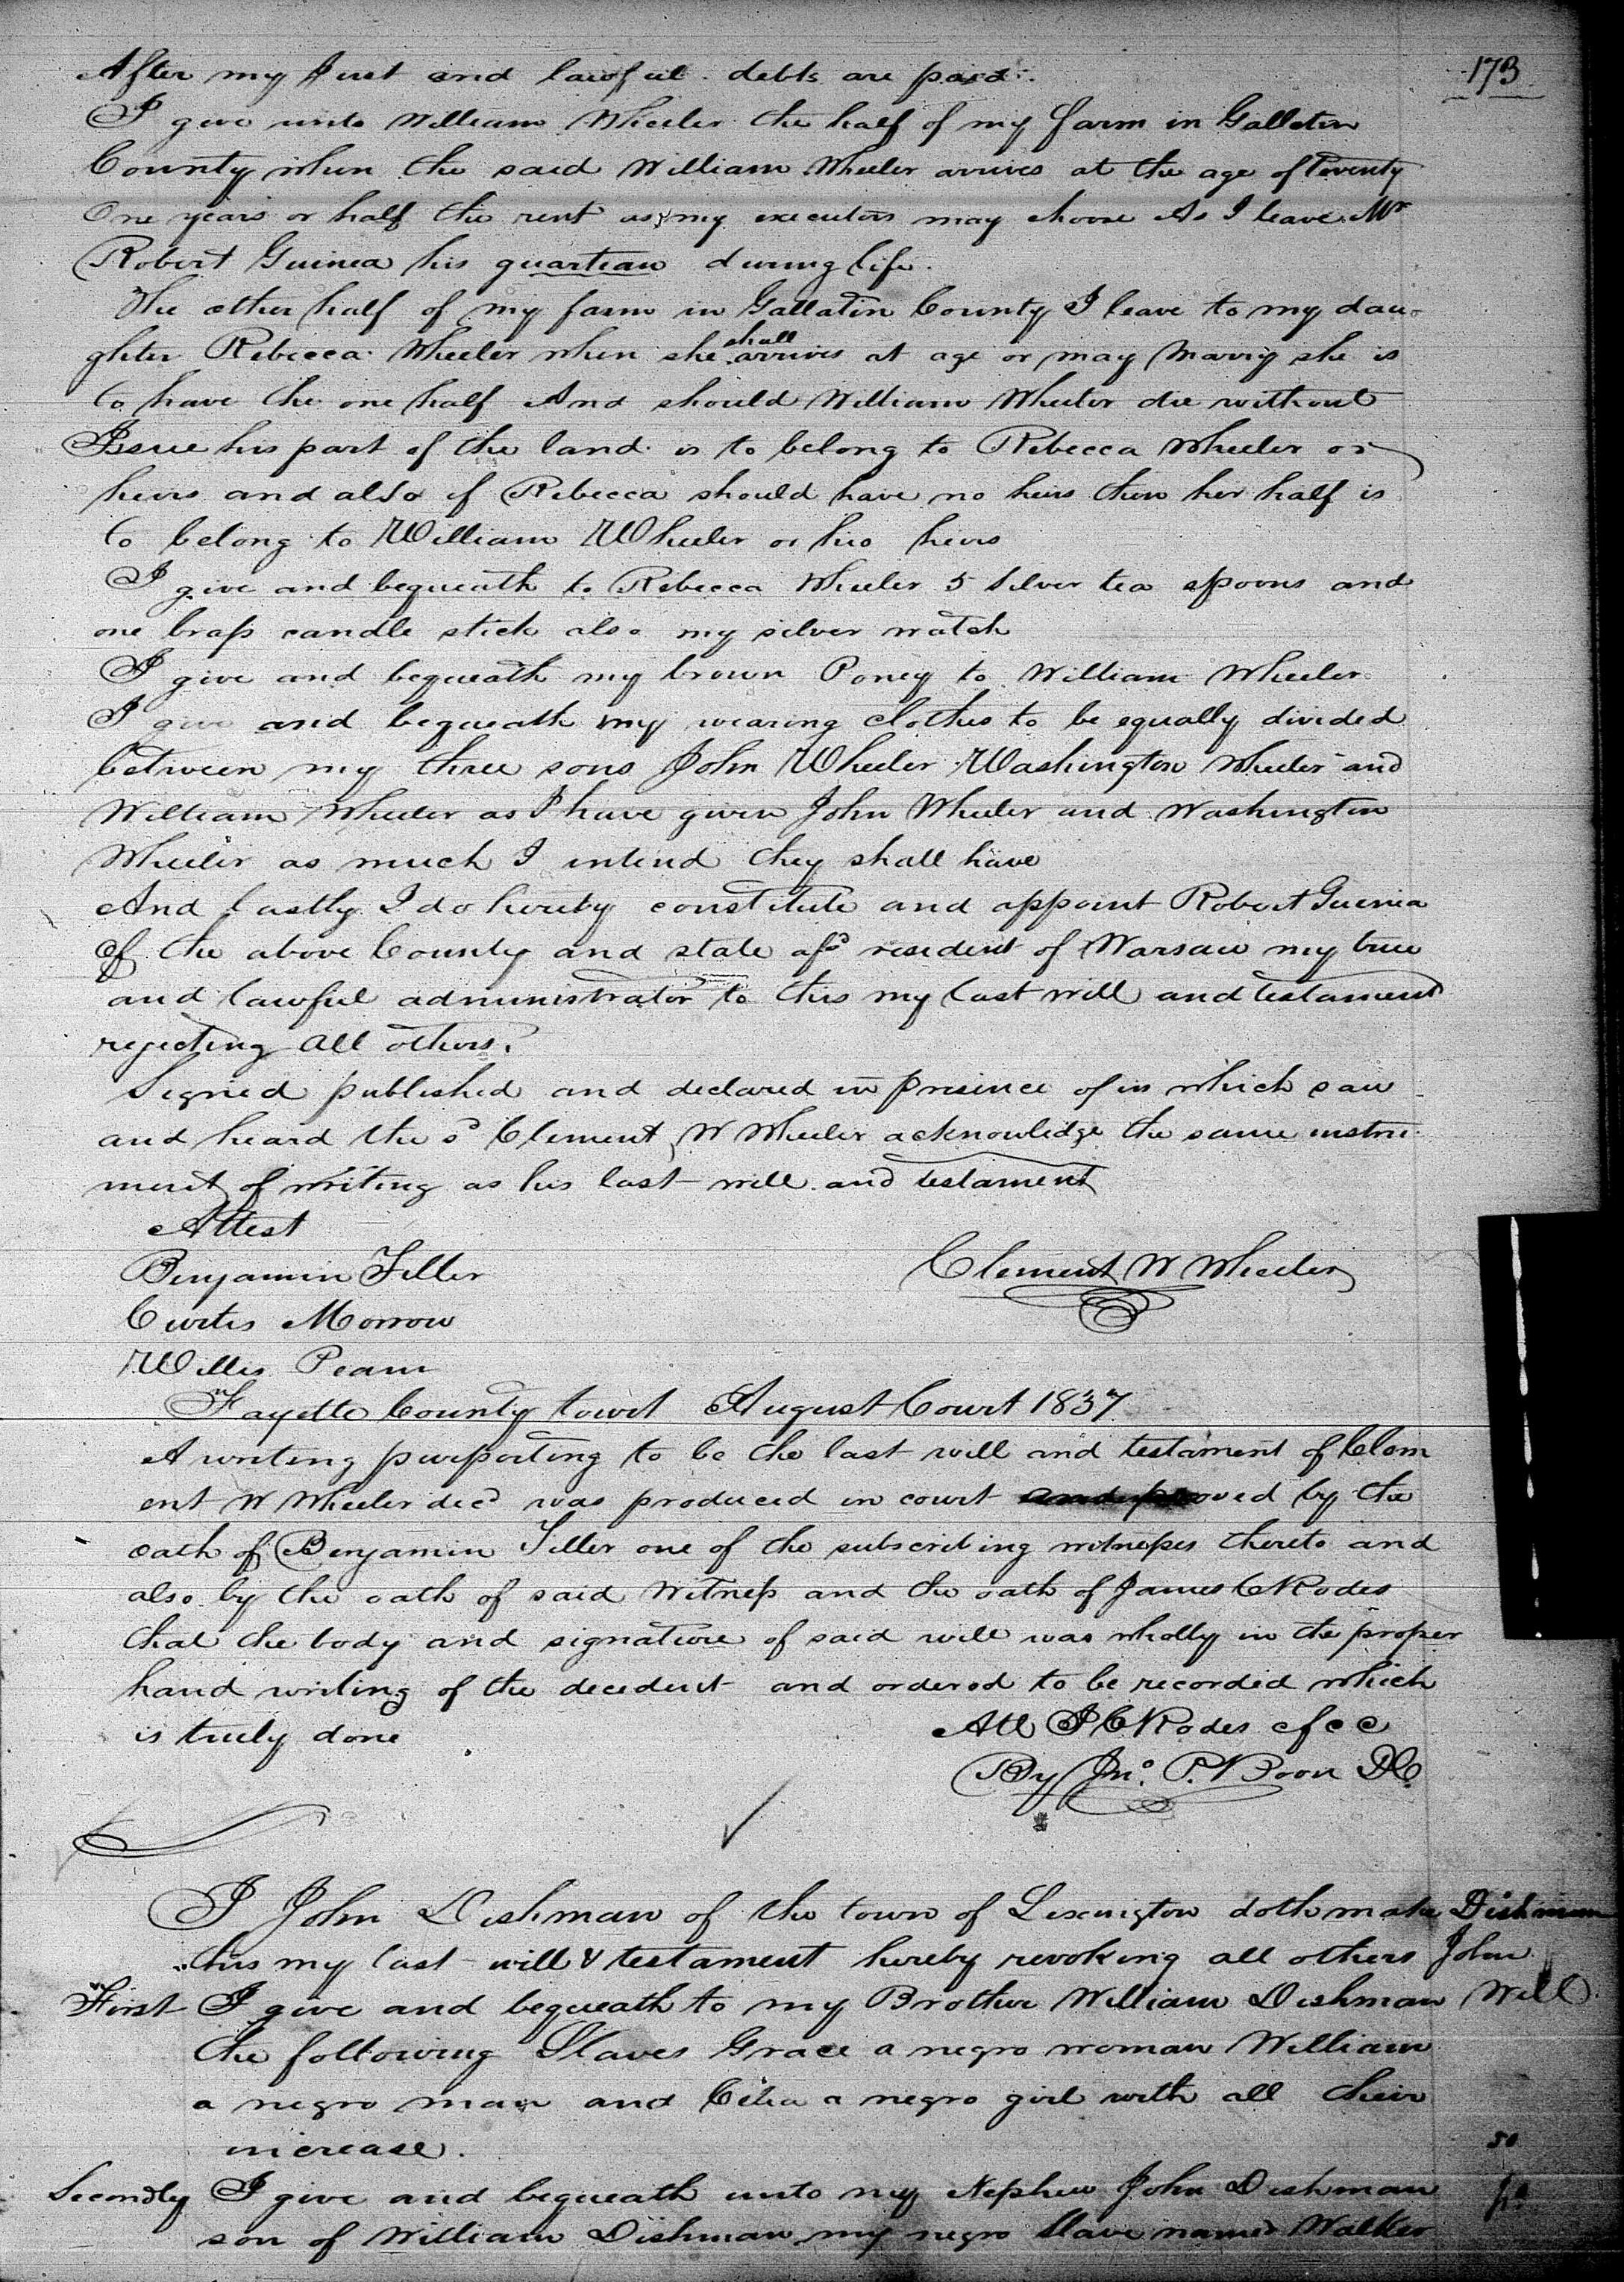 173
After my Just and lawful debts are paid.
I give unto William Wheeler the half of my farm in Gallatin
County when the said William Wheeler arrives at the age of Twenty
One years or half the rent as my executors may choose As I leave Mr
Robert Guinea his guartian during life.
The other half of my farm in Gallatin County I leave to my dau-
ghter Rebecca Wheeler when she shall arrives at age or may Marry she is
to have the one half And should William Wheeler die without
Issue his part of the land is to belong to Rebecca Wheeler or
heirs and also if Rebecca should have no heirs then her half is
to belong to William Wheeler or his heirs
I give and bequeath to Rebecca Wheeler 5 silver tea spoons and
one brass candle stick also my silver watch
I give and bequeath my brown Poney to William Wheeler
I give and bequeath my wearing clothes to be equally divided
between my three sons John Wheeler Washington Wheeler and
William Wheeler as I have given John Wheeler and Washington
Wheeler as much I intend they shall have
And lastly I do hereby constitute and appoint Robert Guinea
of the above County and state afsd resident of Warsaw my true
and lawful administrator to this my last will and testament
rejecting all others.
Signed published and declared in presince of us which saw
and heard the sd Clement W Wheeler acknowledge the same instru-
ment of writing as his last will and testament
Attest
Benjamin Tiller
Clement W Wheeler
Curtis Morrow
Willis Peam
Fayette County towit August Court 1837
A writing purporting to be the last will and testament of Clem
ent W Wheeler decd was produced in court and proved by the
oath of Benjamin Tiller one of the subscribing witnesses thereto and
also by the oath of said Witness and the oath of James C Rodes
that the body and signature of said will was wholly in the proper
hand writing of the decedent and ordered to be recorded which
is truly done
Att J C Rodes c f c c
By Jno. P. Boon DC.
I John Dishman of the town of Lexington doth make
Dishman
this my last will & testament hereby revoking all others
John
First I give and bequeath to my Brother William Dishman
Will
the following Slaves Grace a negro woman William
a negro man and Celia a negro girl with all their
increase.
Secondly I give and bequeath unto my Nephew John Dishman
son of William Dishman my negro slave named Walker